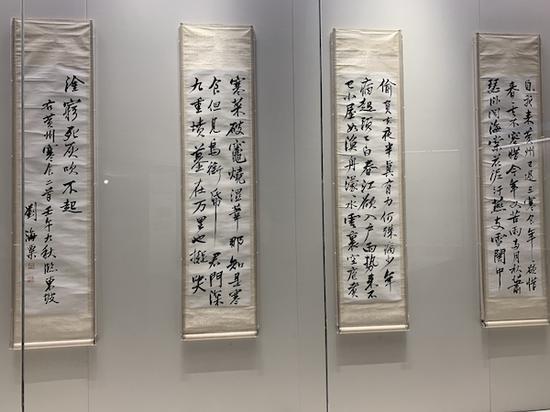 自我来黃州已過三寒食年年欲惜
春〻去不容惜今年又苦雨兩月秋蕭
瑟臥聞海棠花泥汙燕支雪闇中
偷負去夜半真有力何殊病少年
病起頭已白春江欲入戶雨勢来不
已小屋如漁舟濛〻水雲裏空庖煮
寒菜破竈燒溼葦那知是寒
食但見烏銜帋 君門深
九重墳墓在万里也擬哭
塗窮死灰吹不起
右黃州寒食二首壬午秋臨東坡
劉海粟